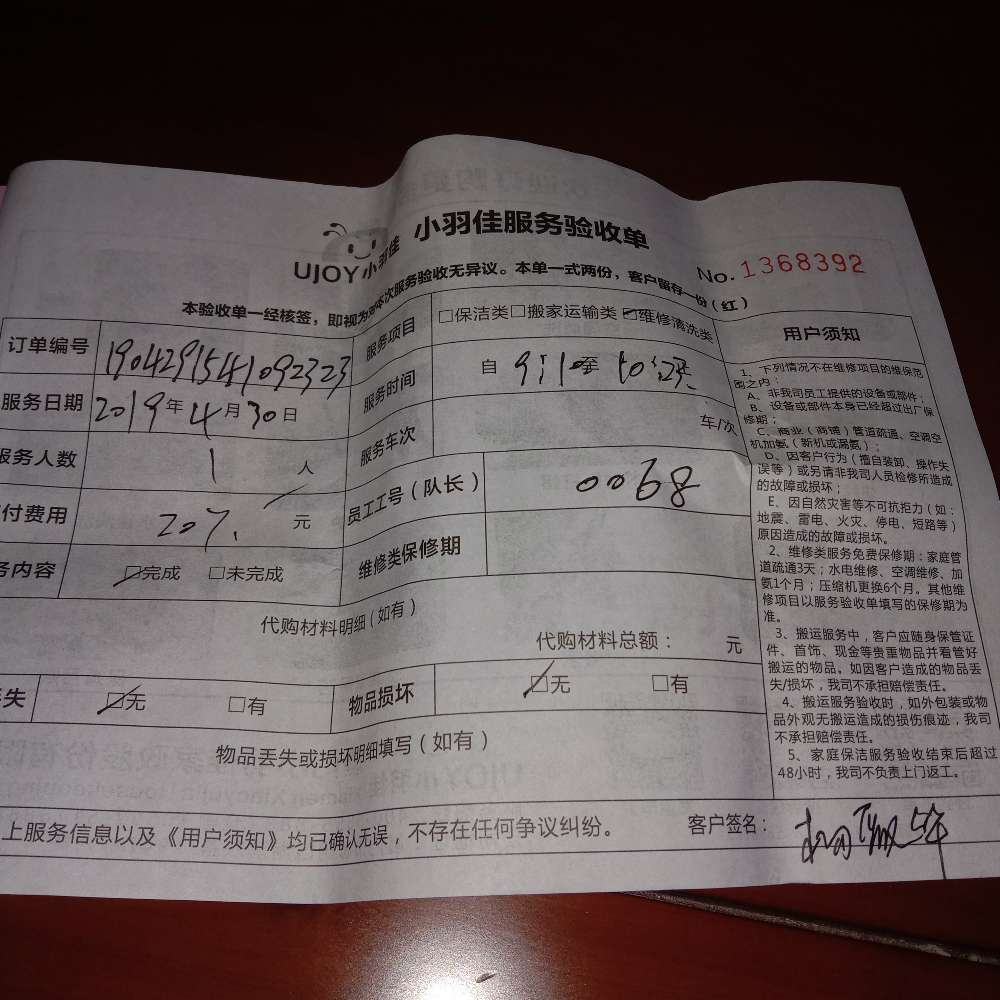 小羽佳服务验收单
UJOY小羽佳
No. 1368392
本验收单一经核签，即视为对本次服务验收无异议。本单一式两份，客户留存一份（红）
订单编号 1904291541092323
服务项目 □保洁类□搬家运输类☑维修清洗类
服务日期 2019年4月30日
服务时间 自 至
服务人数 1 人
服务车次 车/次
付费用 207. 元
员工工号（队长） 0068
务内容 ☑完成 □未完成
维修类保修期
代购材料明细(如有)
代购材料总额： 元
丢失 ☑无 □有
物品损坏 ☑无 □有
物品丢失或损坏明细填写(如有)
上服务信息以及《用户须知》均已确认无误，不存在任何争议纠纷。
客户签名：
用户须知
1、下列情况不在维修项目的维保范
围之内：
A、非我司员工提供的设备或部件；
B、设备或部件本身已经超过出厂保
修期；
C、商业（商铺）管道疏通、空调空
机加氨（新机或漏氨）；
D、因客户行为（擅自装卸、操作失
误等）或另请非我司人员检修所造成
的故障或损坏；
E、因自然灾害等不可抗拒力（如：
地震、雷电、火灾、停电、短路等）
原因造成的故障或损坏。
2、维修类服务免费保修期：家庭管
道疏通3天；水电维修、空调维修、加
氨1个月；压缩机更换6个月。其他维
修项目以服务验收单填写的保修期为
准。
3、搬运服务中，客户应随身保管证
件、首饰、现金等贵重物品并看管好
搬运的物品。如因客户造成的物品丢
失/损坏，我司不承担赔偿责任。
4、搬运服务验收时，如外包装或物
品外观无搬运造成的损伤痕迹，我司
不承担赔偿责任。
5、家庭保洁服务验收结束后超过
48小时，我司不负责上门返工。